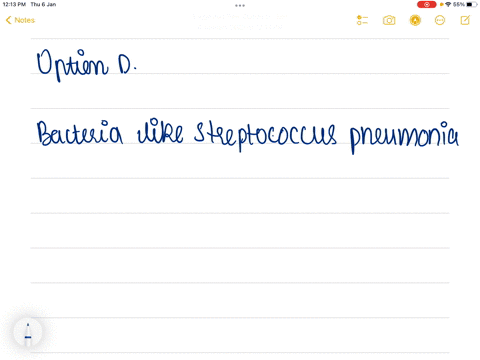 12:13 PM Thu 6 Jan
55%
Notes
Option D.
Bacteria like streptococcus pneumonia